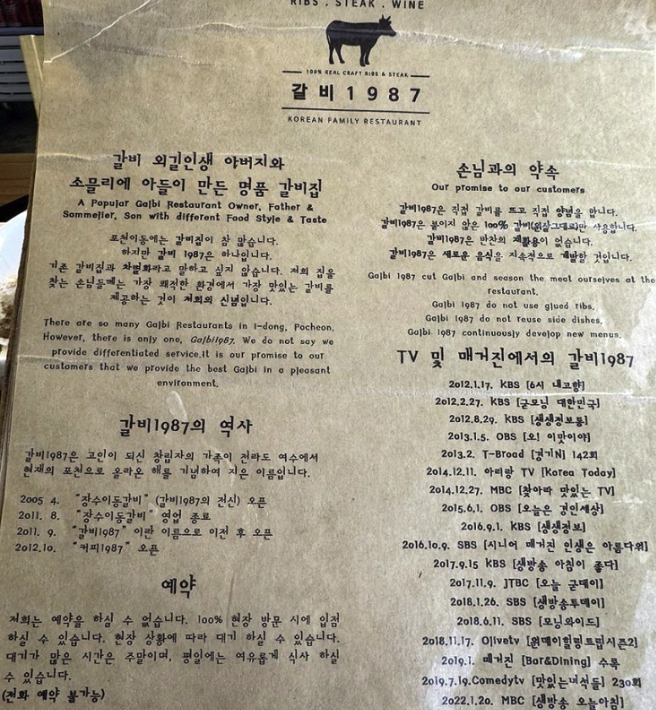 RIBS . STEAK . WINE
100% REAL CRAFT RIBS & STEAK
갈비1987
KOREAN FAMILY RESTAURANT
갈비 외길인생 아버지와
소믈리에 아들이 만든 명품 갈비집
A Popular Galbi Restaurant Owner, Father &
Sommelier, Son with different Food Style & Taste
포천이동에는 갈비집이 참 많습니다.
하지만 갈비 1987은 하나입니다.
기존 갈비집과 차별화라고 말하고 싶지 않습니다. 저희 집을
찾는 손님들께는 가장 쾌적한 환경에서 가장 맛있는 갈비를
제공하는 것이 저희의 신념입니다.
There are so many Galbi Restaurants in I-dong, Pocheon.
However, there is only one, Galbi1987. We do not say we
provide differentiated service.It is our promise to our
customers that we provide the best Galbi in a pleasant
environment.
갈비1987의 역사
갈비1987은 고인이 되신 창립자의 가족이 전라도 여수에서
현재의 포천으로 올라온 해를 기념하여 지은 이름입니다.
2005 4. "장수이동갈비" (갈비1987의 전신) 오픈
2011. 8. "장수이동갈비" 영업 종료
2011. 9. "갈비1987" 이란 이름으로 이전 후 오픈
2012.10. "커피1987" 오픈
예약
저희는 예약을 하실 수 없습니다. 100% 현장 방문 시에 입점
하실 수 있습니다. 현장 상황에 따라 대기 하실 수 있습니다.
대기가 많은 시간은 주말이며, 평일에는 여유롭게 식사 하실
수 있습니다.
(전화 예약 불가능)
손님과의 약속
Our promise to our customers
갈비1987은 직접 갈비를 뜨고 직접 양념을 합니다.
갈비1987은 붙이지 않은 100% 갈비(원살그대로)만 사용합니다.
갈비1987은 반찬의 재활용이 없습니다.
갈비1987은 새로운 음식을 지속적으로 개발할 것입니다.
Galbi 1987 cut Galbi and season the meat ourselves at the
restaurant.
Galbi 1987 do not use glued ribs.
Galbi 1987 do not reuse side dishes.
Galbi 1987 continuously develop new menus.
TV 및 매거진에서의 갈비1987
2012.1.17. KBS [6시 내고향]
2012.2.27. KBS [굿모닝 대한민국]
2012.8.29. KBS [생생정보통]
2013.1.5. OBS [오! 이맛이야]
2013.2. T-Broad [경기N] 142회
2014.12.11. 아리랑 TV [Korea Today]
2014.12.27. MBC [찾아라 맛있는 TV]
2015.6.1. OBS [오늘은 경인세상]
2016.9.1. KBS [생생정보]
2016.10.9. SBS [시니어 매거진 인생은 아름다워]
2017.9.15 KBS [생방송 아침이 좋다]
2017.11.9. JTBC [오늘 굿데이]
2018.1.26. SBS [생방송투데이]
2018.6.11. SBS [모닝와이드]
2018.11.17. Olivetv [원데이힐링트립시즌2]
2019.1. 매거진 [Bar&Dining] 수록
2019.7.19.Comedytv [맛있는녀석들] 230회
2022.1.20. MBC [생방송 오늘아침]